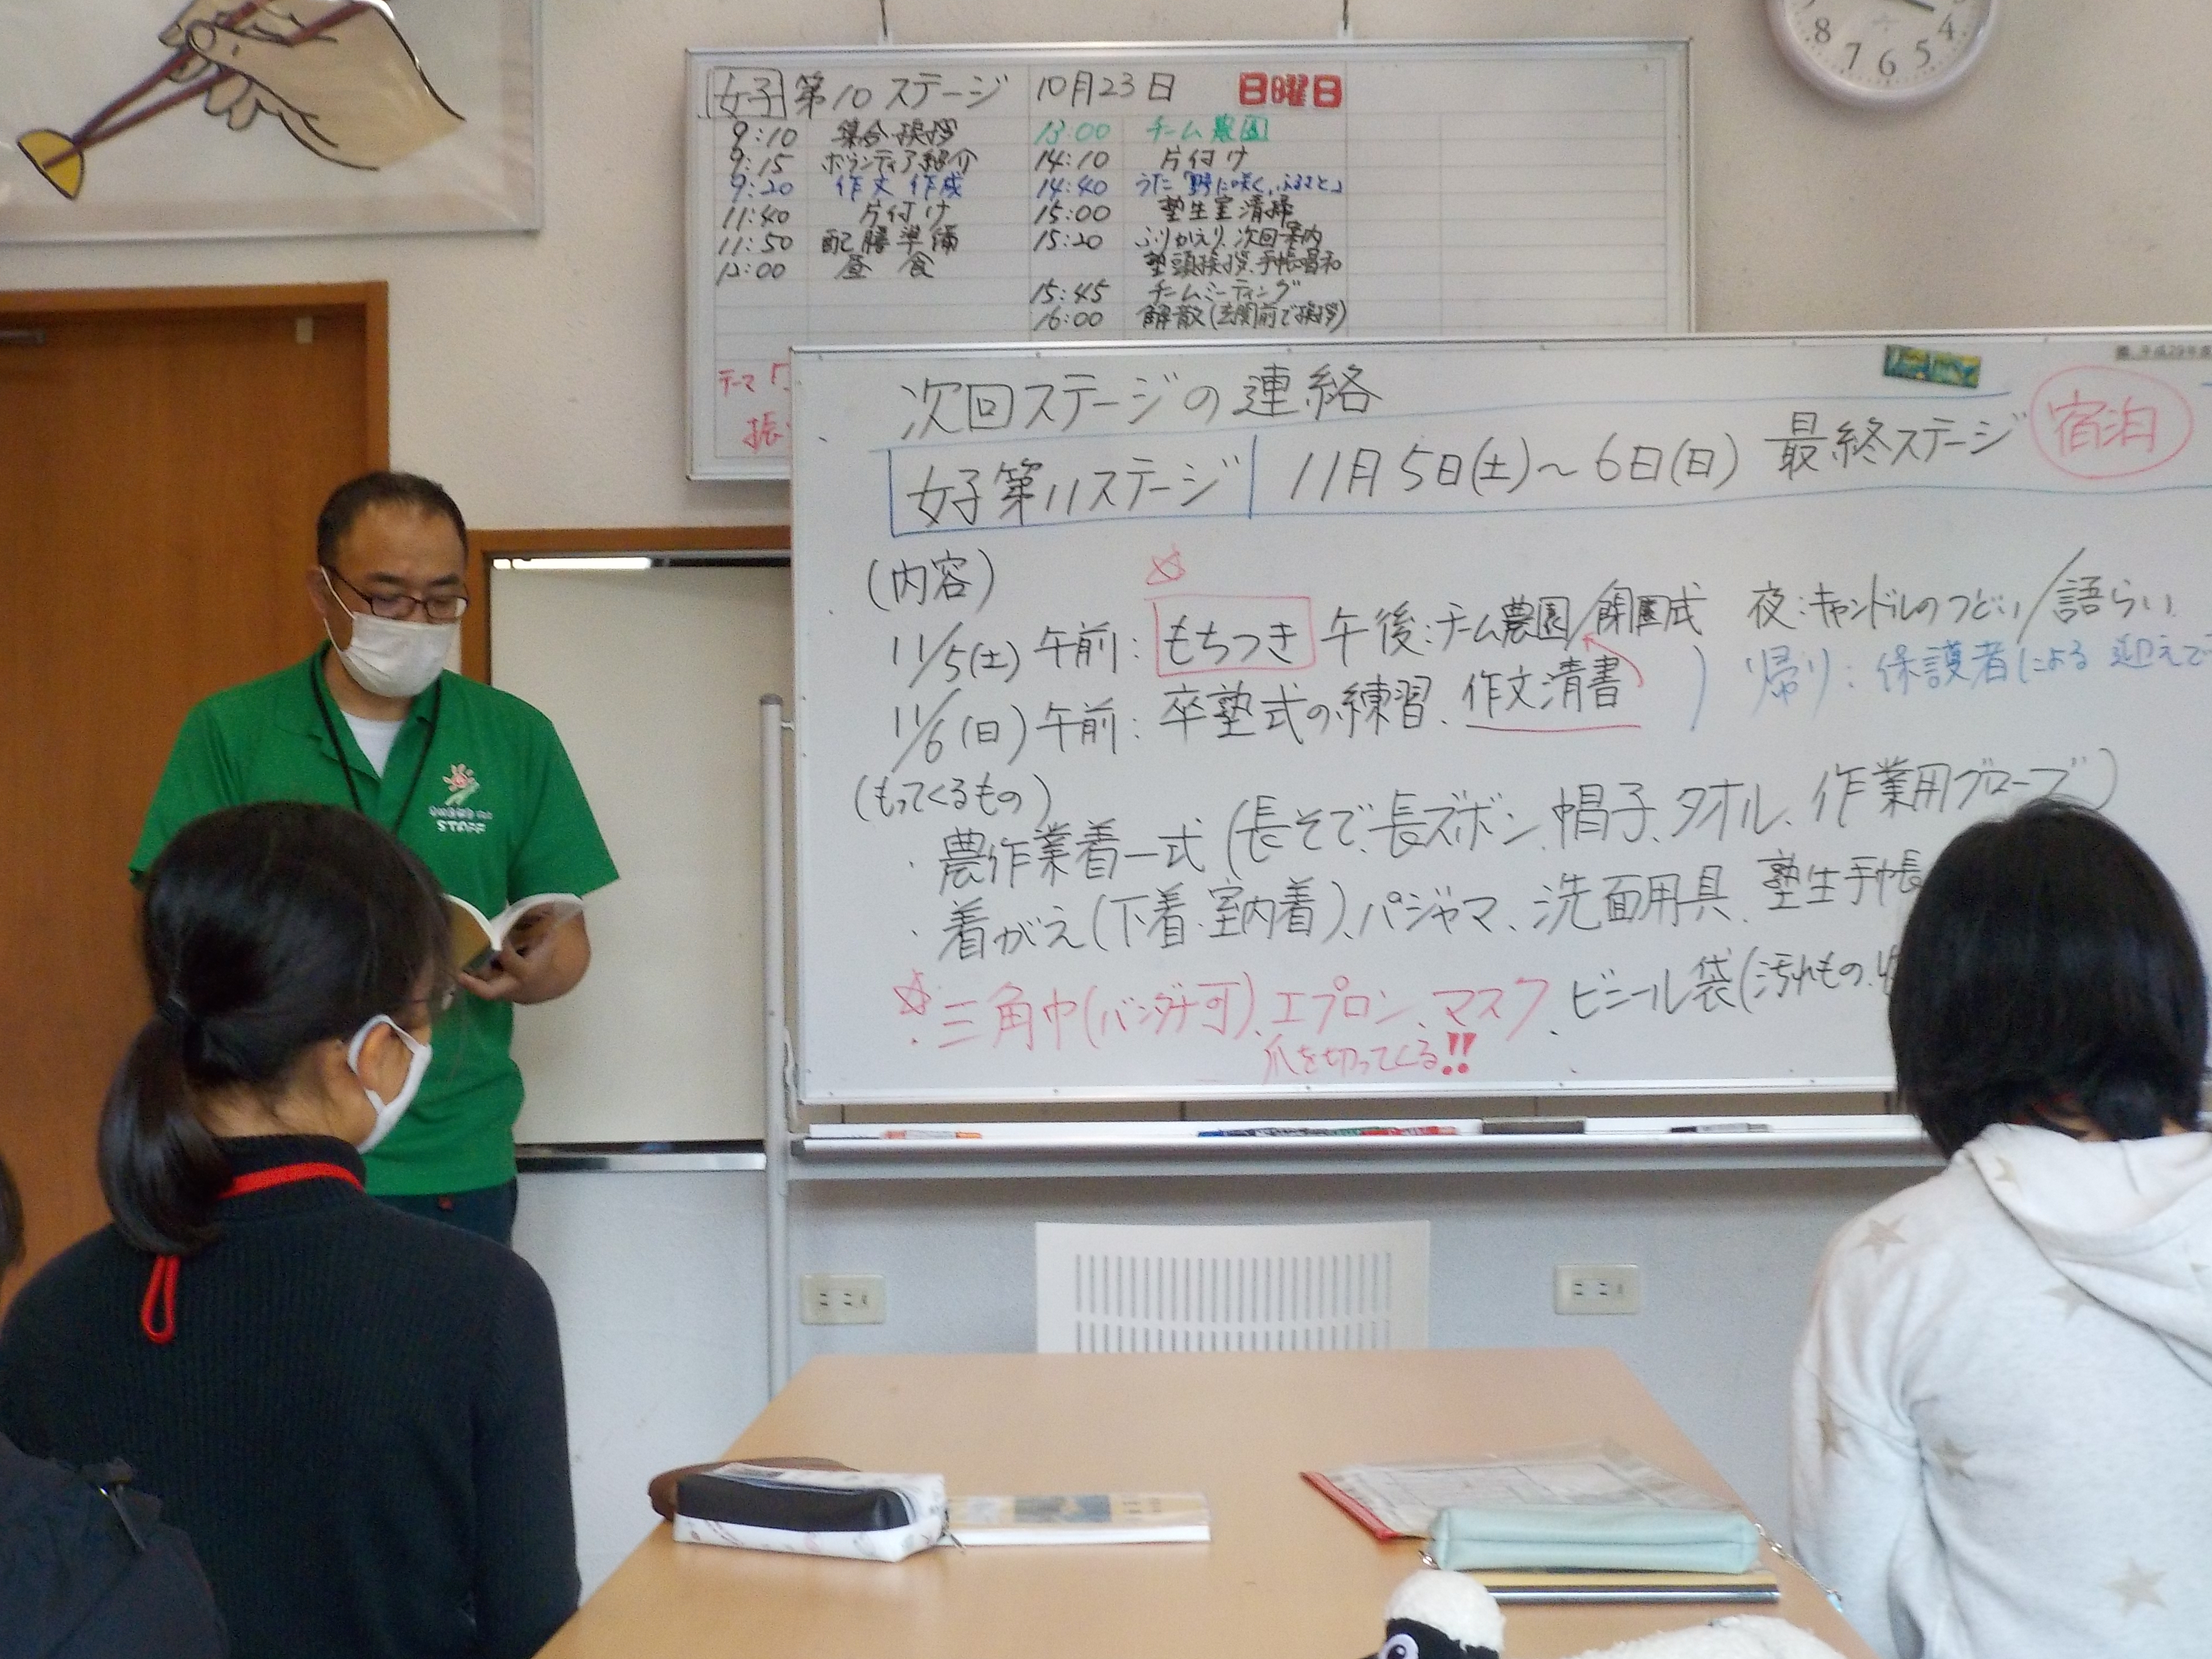 女子 第10ステージ 10月23日 日曜日
9:10 集合・挨拶
9:15 ボランティア紹介
9:20 作文作成
11:40 片付け
11:50 配膳準備
12:00 昼食
13:00 チーム農園
14:10 片付け
14:40 うた「野に咲く、ふるさと」
15:00 塾生室清掃
15:20 ふりかえり、次回案内
塾頭挨拶、手帳唱和
15:45 チームミーティング
16:00 解散(玄関前で挨拶)
テーマ「
振
次回ステージの連絡
女子第11ステージ 11月5日(土)～6日(日) 最終ステージ 宿泊
(内容)
11/5(土) 午前:もちつき 午後:チーム農園/閉園式 夜:キャンドルのつどい/語らい
11/6(日) 午前:卒塾式の練習、作文清書 ) 帰り:保護者による迎えで
(もってくるもの)
・農作業着一式(長そで、長ズボン、帽子、タオル、作業用グローブ)
・着がえ(下着、室内着)、パジャマ、洗面用具、塾生手帳
☆・三角巾(バンダナ可)、エプロン、マスク、ビニール袋(汚れもの、
爪を切ってくる!!
STAFF
8 7 6 5 4
平成29年度